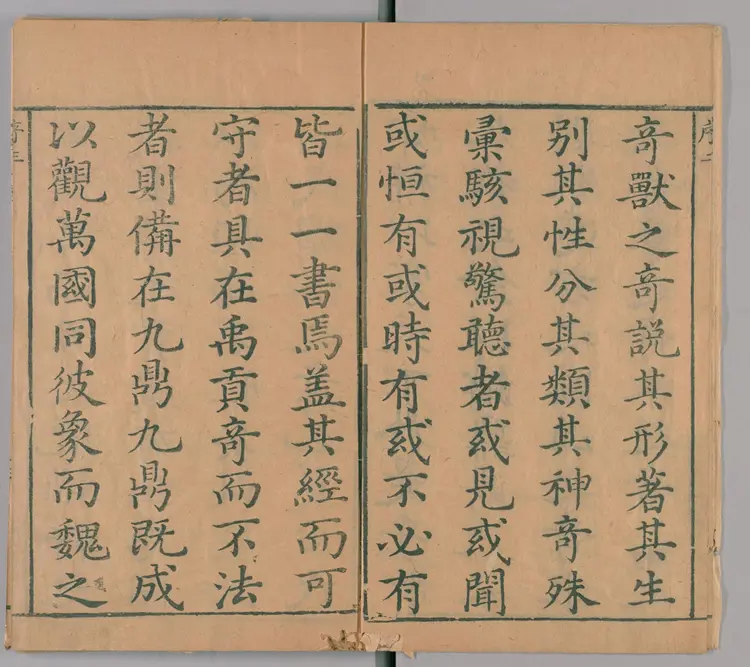 序二
竒獸之竒説其形著其生
別其性分其類其神竒殊
彙駭視驚聽者或見或聞
或恒有或時有或不必有
皆一一書焉盖其經而可
守者具在禹貢竒而不法
者則備在九鼎九鼎既成
以觀萬國同彼象而魏之
序三